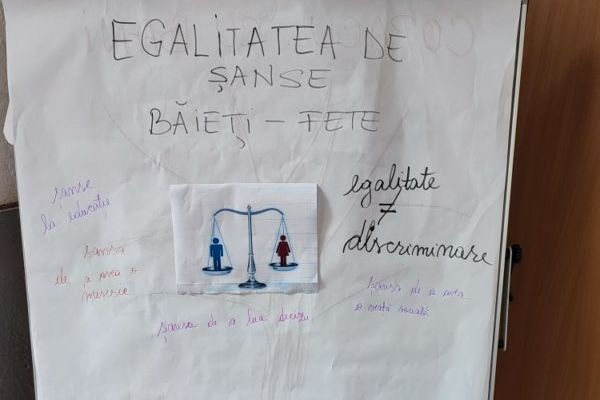 EGALITATEA DE
ȘANSE
BĂIEȚI - FETE
șanse
la educație
egalitate
≠
discriminare
șansa
de a avea o
meserie
șansa de a avea
o viață socială
șansa de a lua decizii